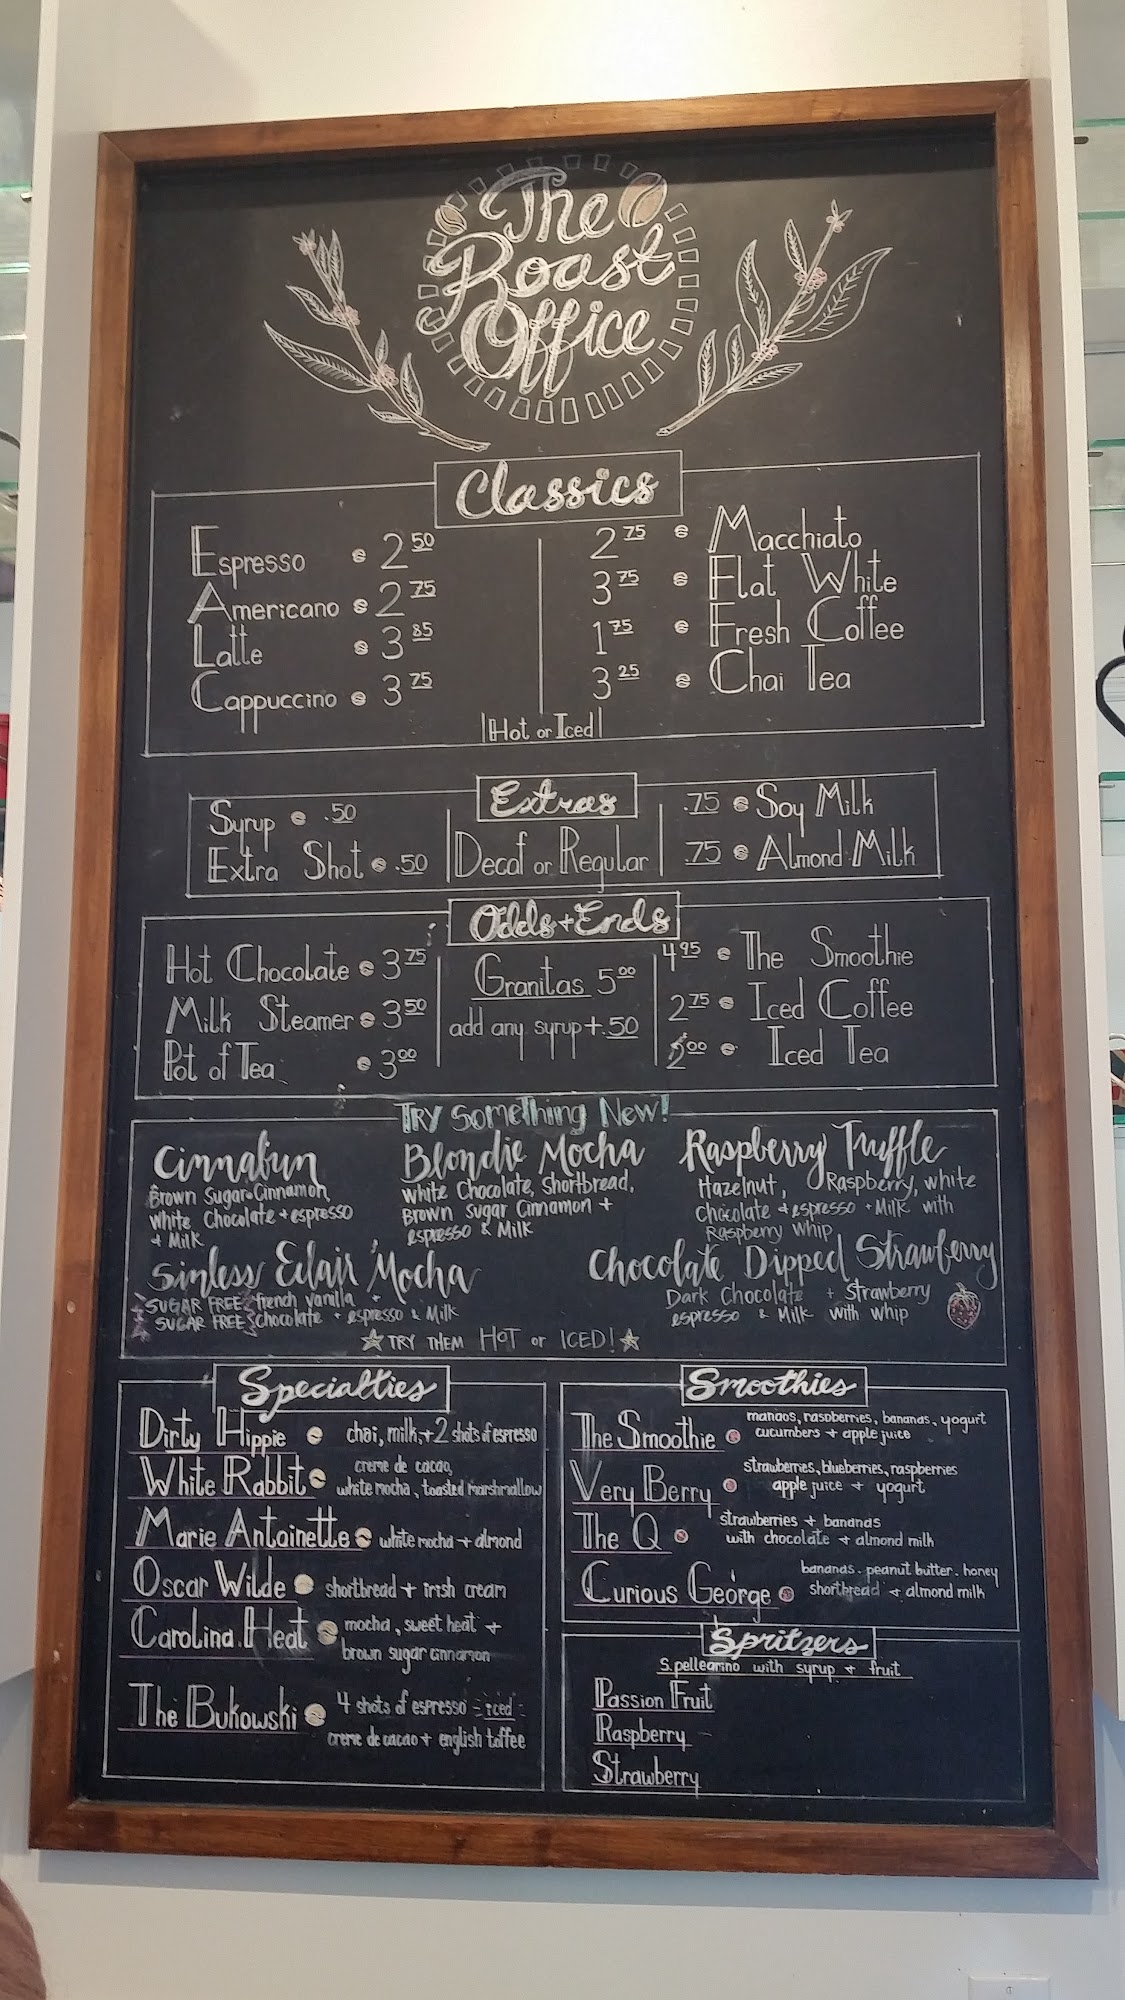 The
Roast
Office
Classics
Espresso 2 50
Americano 2 75
Latte 3 85
Cappuccino 3 75
2 75 Macchiato
3 75 Flat White
1 75 Fresh Coffee
3 25 Chai Tea
Hot or Iced
Extras
Syrup .50
Extra Shot .50
Decaf or Regular
.75 Soy Milk
.75 Almond Milk
Odds + Ends
Hot Chocolate 3 75
Milk Steamer 3 50
Pot of Tea 3 00
Granitas 5 00
add any syrup + .50
4 95 The Smoothie
2 75 Iced Coffee
2 00 Iced Tea
TRY Something New!
Cinnabun
Brown Sugar Cinnamon,
White Chocolate + espresso
+ Milk
Blondie Mocha
White Chocolate, Shortbread,
Brown Sugar Cinnamon +
espresso & Milk
Raspberry Truffle
Hazelnut, Raspberry, white
Chocolate + espresso + Milk with
Raspberry Whip
Sinless Eclair Mocha
SUGAR FREE french vanilla +
SUGAR FREE chocolate + espresso & Milk
Chocolate Dipped Strawberry
Dark Chocolate + Strawberry
espresso & Milk with whip
TRY THEM HOT or ICED!
Specialties
Dirty Hippie chai, milk, + 2 shots of espresso
White Rabbit creme de cacao,
white mocha, toasted marshmallow
Marie Antoinette white mocha + almond
Oscar Wilde shortbread + irish cream
Carolina Heat mocha, sweet heat +
brown sugar cinnamon
The Bukowski 4 shots of espresso - iced -
creme de cacao + english toffee
Smoothies
The Smoothie mangos, raspberries, bananas, yogurt
cucumbers + apple juice
Very Berry strawberries, blueberries, raspberries
apple juice + yogurt
The Q strawberries + bananas
with chocolate + almond milk
Curious George bananas, peanut butter, honey
shortbread + almond milk
Spritzers
S.pellegrino with syrup + fruit
Passion Fruit
Raspberry
Strawberry